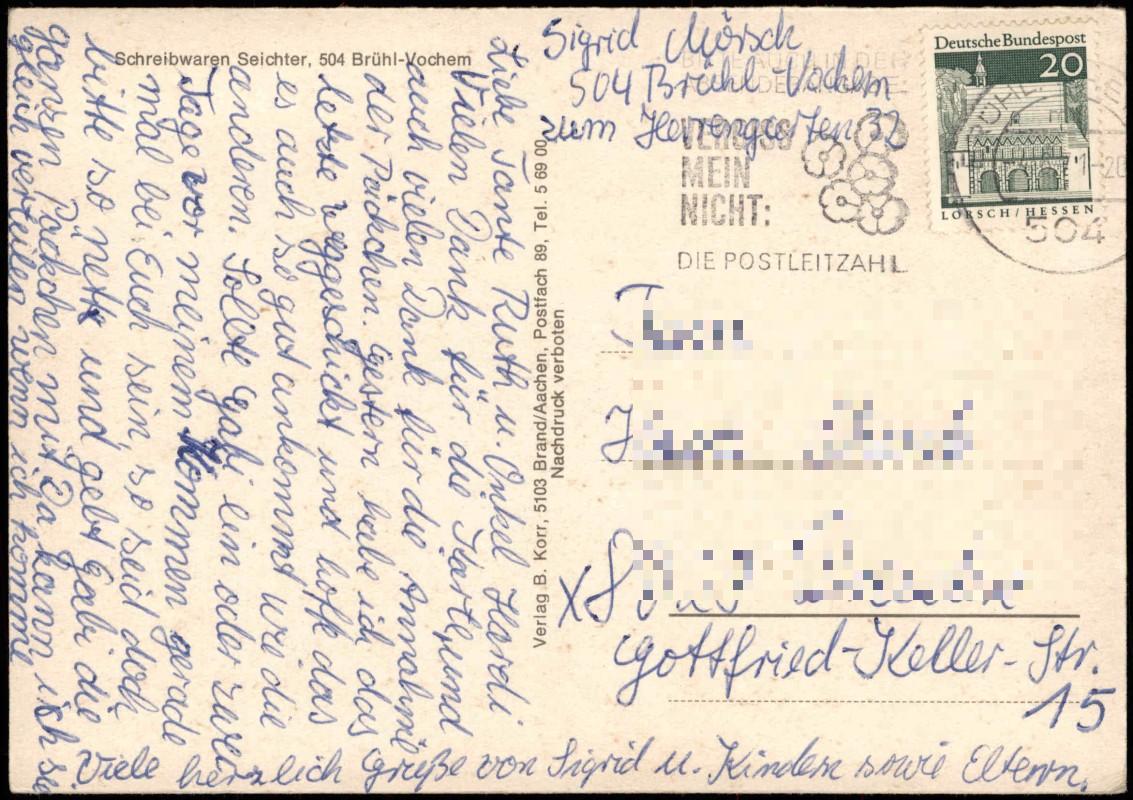 Schreibwaren Seichter, 504 Brühl-Vochem
Liebe Tante Ruth u. Onkel Hardi
Vielen Dank für die Karte, und
auch vielen Dank für die Annahme
der Päckchen. Gestern habe ich das
letzte weggeschickt und hoffe das
es auch so gut ankommt wie die
anderen. Sollte Gabi ein oder zwei
Tage vor meinem Kommen gerade
mal bei Euch sein so seid doch
bitte so nett und gebt Gabi die
ganzen Päckchen mit. Da kann ich sie
gleich verteilen wenn ich komme
Viele herzlich Grüße von Sigrid u. Kindern sowie Eltern.
Verlag B. Korr, 5103 Brand/Aachen, Postfach 89, Tel. 5 69 00
Nachdruck verboten
Sigrid Mörsch
504 Brühl-Vochem
zum Herrengarten 32
VERGISS
MEIN
NICHT:
DIE POSTLEITZAHL
Deutsche Bundespost
20
LORSCH/HESSEN
BRÜHL
504
X8
Gottfried-Keller-Str.
15